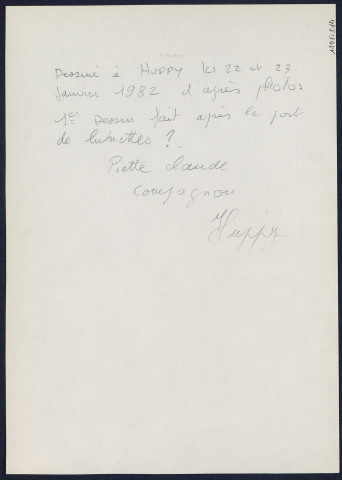 Dessiné à HUPPY les 22 et 23
Janvier 1982 d'après photos
1er Dessin fait après le port
de lunettes ?
Piette Claude
Compagnon
Huppy